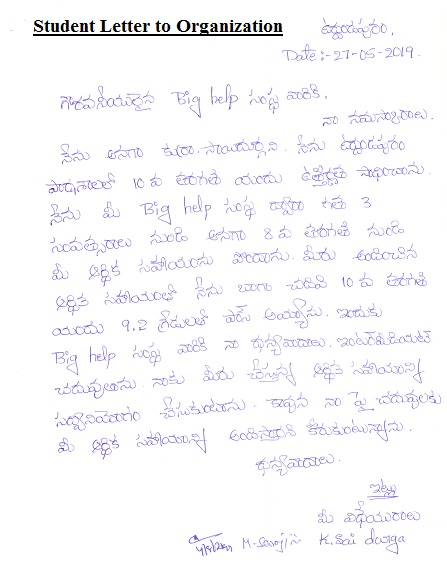 Student Letter to Organization
ఉద్దండపురం,
Date :- 27-05-2019.
గౌరవనీయులైన Big help సంస్థ వారికి,
నా నమస్కారాలు.
నేను అనగా కుమారి. సాయిదుర్గని. నేను ఉద్దండపురం
పాఠశాలలో 10 వ తరగతి యందు ఉత్తీర్ణత సాధించాను.
నేను మీ Big help సంస్థ ద్వారా గత 3
సంవత్సరాలు నుండి అనగా 8 వ తరగతి నుండి
మీ ఆర్థిక సహాయంను పొందాను. మీరు అందించిన
ఆర్థిక సహాయంతో నేను బాగా చదివి 10 వ తరగతి
యందు 9.2 గ్రేడులతో పాస్ అయ్యాను. ఇందుకు
Big help సంస్థ వారికి నా ధన్యవాదాలు. ఇంటర్మీడియట్
చదువుతాను. నాకు మీరు చేస్తున్న ఆర్థిక సహాయాన్ని
సద్వినియోగం చేసుకుంటాను. కావున నా పై చదువులకు
మీ ఆర్థిక సహాయాన్ని అందిస్తారని కోరుకుంటున్నాను.
ధన్యవాదాలు.
ఇట్లు
మీ విధేయురాలు
M. Sarojini K. Sai durga